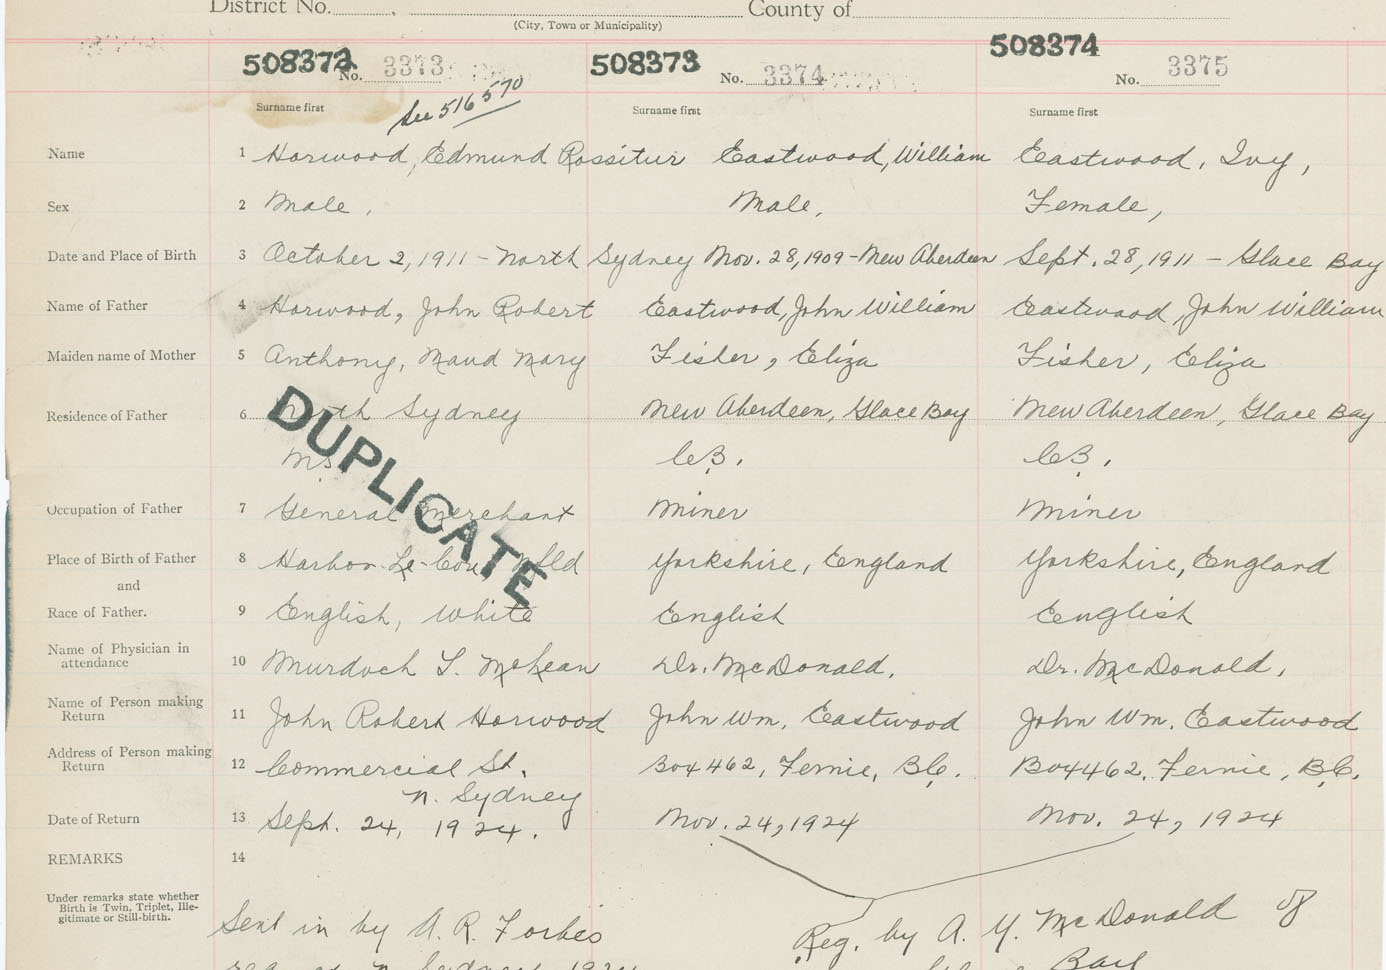 District No. , County of
(City, Town or Municipality)
508372 No. 3373 508373 No. 3374 508374 No. 3375
Surname first See 516570 Surname first Surname first
Name 1 Horwood, Edmund Rossitur Eastwood, William Eastwood, Ivy,
Sex 2 Male, Male, Female,
Date and Place of Birth 3 October 2, 1911 - North Sydney Nov. 28, 1909 - New Aberdeen Sept. 28, 1911 - Glace Bay
Name of Father 4 Horwood, John Robert Eastwood, John William Eastwood, John William
Maiden name of Mother 5 Anthony, Maud Mary Fisher, Eliza Fisher, Eliza
Residence of Father 6 North Sydney New Aberdeen, Glace Bay New Aberdeen, Glace Bay
DUPLICATE
C.B. C.B.
Occupation of Father 7 General Merchant Miner Miner
Place of Birth of Father 8 Harbor-Le-Cou Nfld Yorkshire, England Yorkshire, England
and
Race of Father. 9 English, White English English
Name of Physician in attendance 10 Murdoch T. McLean Dr. McDonald, Dr. McDonald,
Name of Person making Return 11 John Robert Horwood John Wm. Eastwood John Wm. Eastwood
Address of Person making Return 12 Commercial St. Box 462, Fernie, B.C. Box 462, Fernie, B.C.
N. Sydney
Date of Return 13 Sept. 24, 1924. Nov. 24, 1924 Nov. 24, 1924
REMARKS 14
Under remarks state whether
Birth is Twin, Triplet, Ille-
gitimate or Still-birth.
Sent in by A. R. Forbes Reg. by A. Y. McDonald of
reg. at N. Sydney 1924